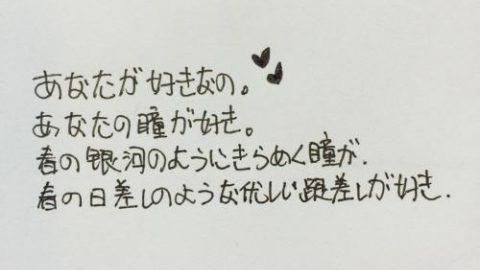 あなたが好きなの。
あなたの瞳が好き。
春の銀河のようにきらめく瞳が.
春の日差しのような優しい眼差しが好き.